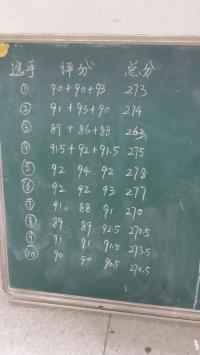 选手 评分 总分
① 90+90+93 273
② 91+93+90 274
③ 89+86+88 263
④ 91.5+92+91.5 275
⑤ 92 94 92 278
⑥ 92 92 93 277
⑦ 91 88 91 270
⑧ 89 89 92.5 270.5
⑨ 91 91 91.5 273.5
⑩ 90 90 90.5 270.5